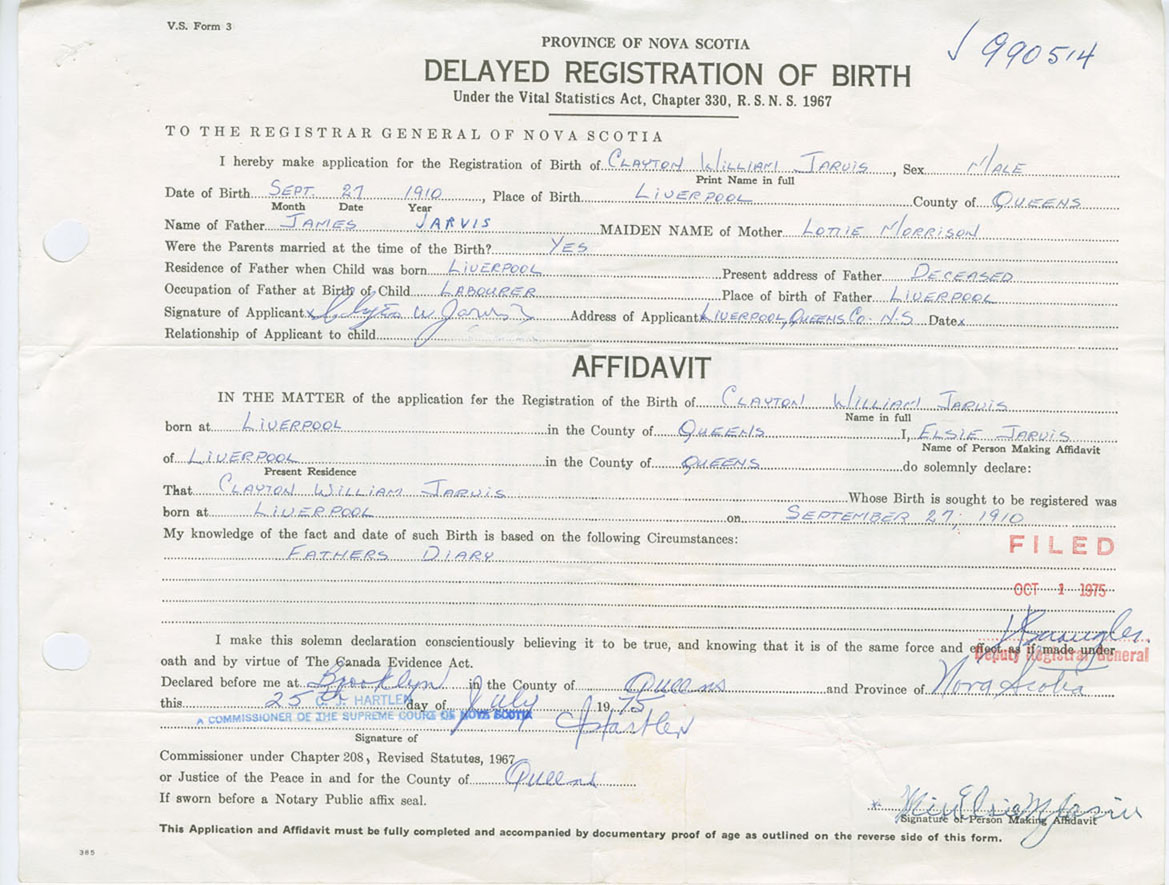 V.S. Form 3
√ 990514
PROVINCE OF NOVA SCOTIA
DELAYED REGISTRATION OF BIRTH
Under the Vital Statistics Act, Chapter 330, R. S. N. S. 1967
TO THE REGISTRAR GENERAL OF NOVA SCOTIA
I hereby make application for the Registration of Birth of CLAYTON WILLIAM JARVIS, Sex MALE
Print Name in full
Date of Birth SEPT. 27 1910, Place of Birth LIVERPOOL County of QUEENS
Month Date Year
Name of Father JAMES JARVIS MAIDEN NAME of Mother LOTTIE MORRISON
Were the Parents married at the time of the Birth? YES
Residence of Father when Child was born LIVERPOOL Present address of Father DECEASED
Occupation of Father at Birth of Child LABOURER Place of birth of Father LIVERPOOL
Signature of Applicant x Clayton W. Jarvis Address of Applicant LIVERPOOL, QUEENS CO. N.S Date x
Relationship of Applicant to child
AFFIDAVIT
IN THE MATTER of the application for the Registration of the Birth of CLAYTON WILLIAM JARVIS
Name in full
born at LIVERPOOL in the County of QUEENS I, ELSIE JARVIS
Name of Person Making Affidavit
of LIVERPOOL in the County of QUEENS do solemnly declare:
Present Residence
That CLAYTON WILLIAM JARVIS Whose Birth is sought to be registered was
born at LIVERPOOL on SEPTEMBER 27, 1910
My knowledge of the fact and date of such Birth is based on the following Circumstances:
FATHERS DIARY
FILED
OCT 1 1975
I make this solemn declaration conscientiously believing it to be true, and knowing that it is of the same force and effect as if made under
Deputy Registrar General
oath and by virtue of The Canada Evidence Act.
Declared before me at Brooklyn in the County of Queens and Province of Nova Scotia
this 25th day of July 1975
C. J. HARTLEN
A COMMISSIONER OF THE SUPREME COURT OF NOVA SCOTIA
CJHartlen
Signature of
Commissioner under Chapter 208, Revised Statutes, 1967
or Justice of the Peace in and for the County of Queens
If sworn before a Notary Public affix seal.
Elsie M Jarvis
Signature of Person Making Affidavit
This Application and Affidavit must be fully completed and accompanied by documentary proof of age as outlined on the reverse side of this form.
385